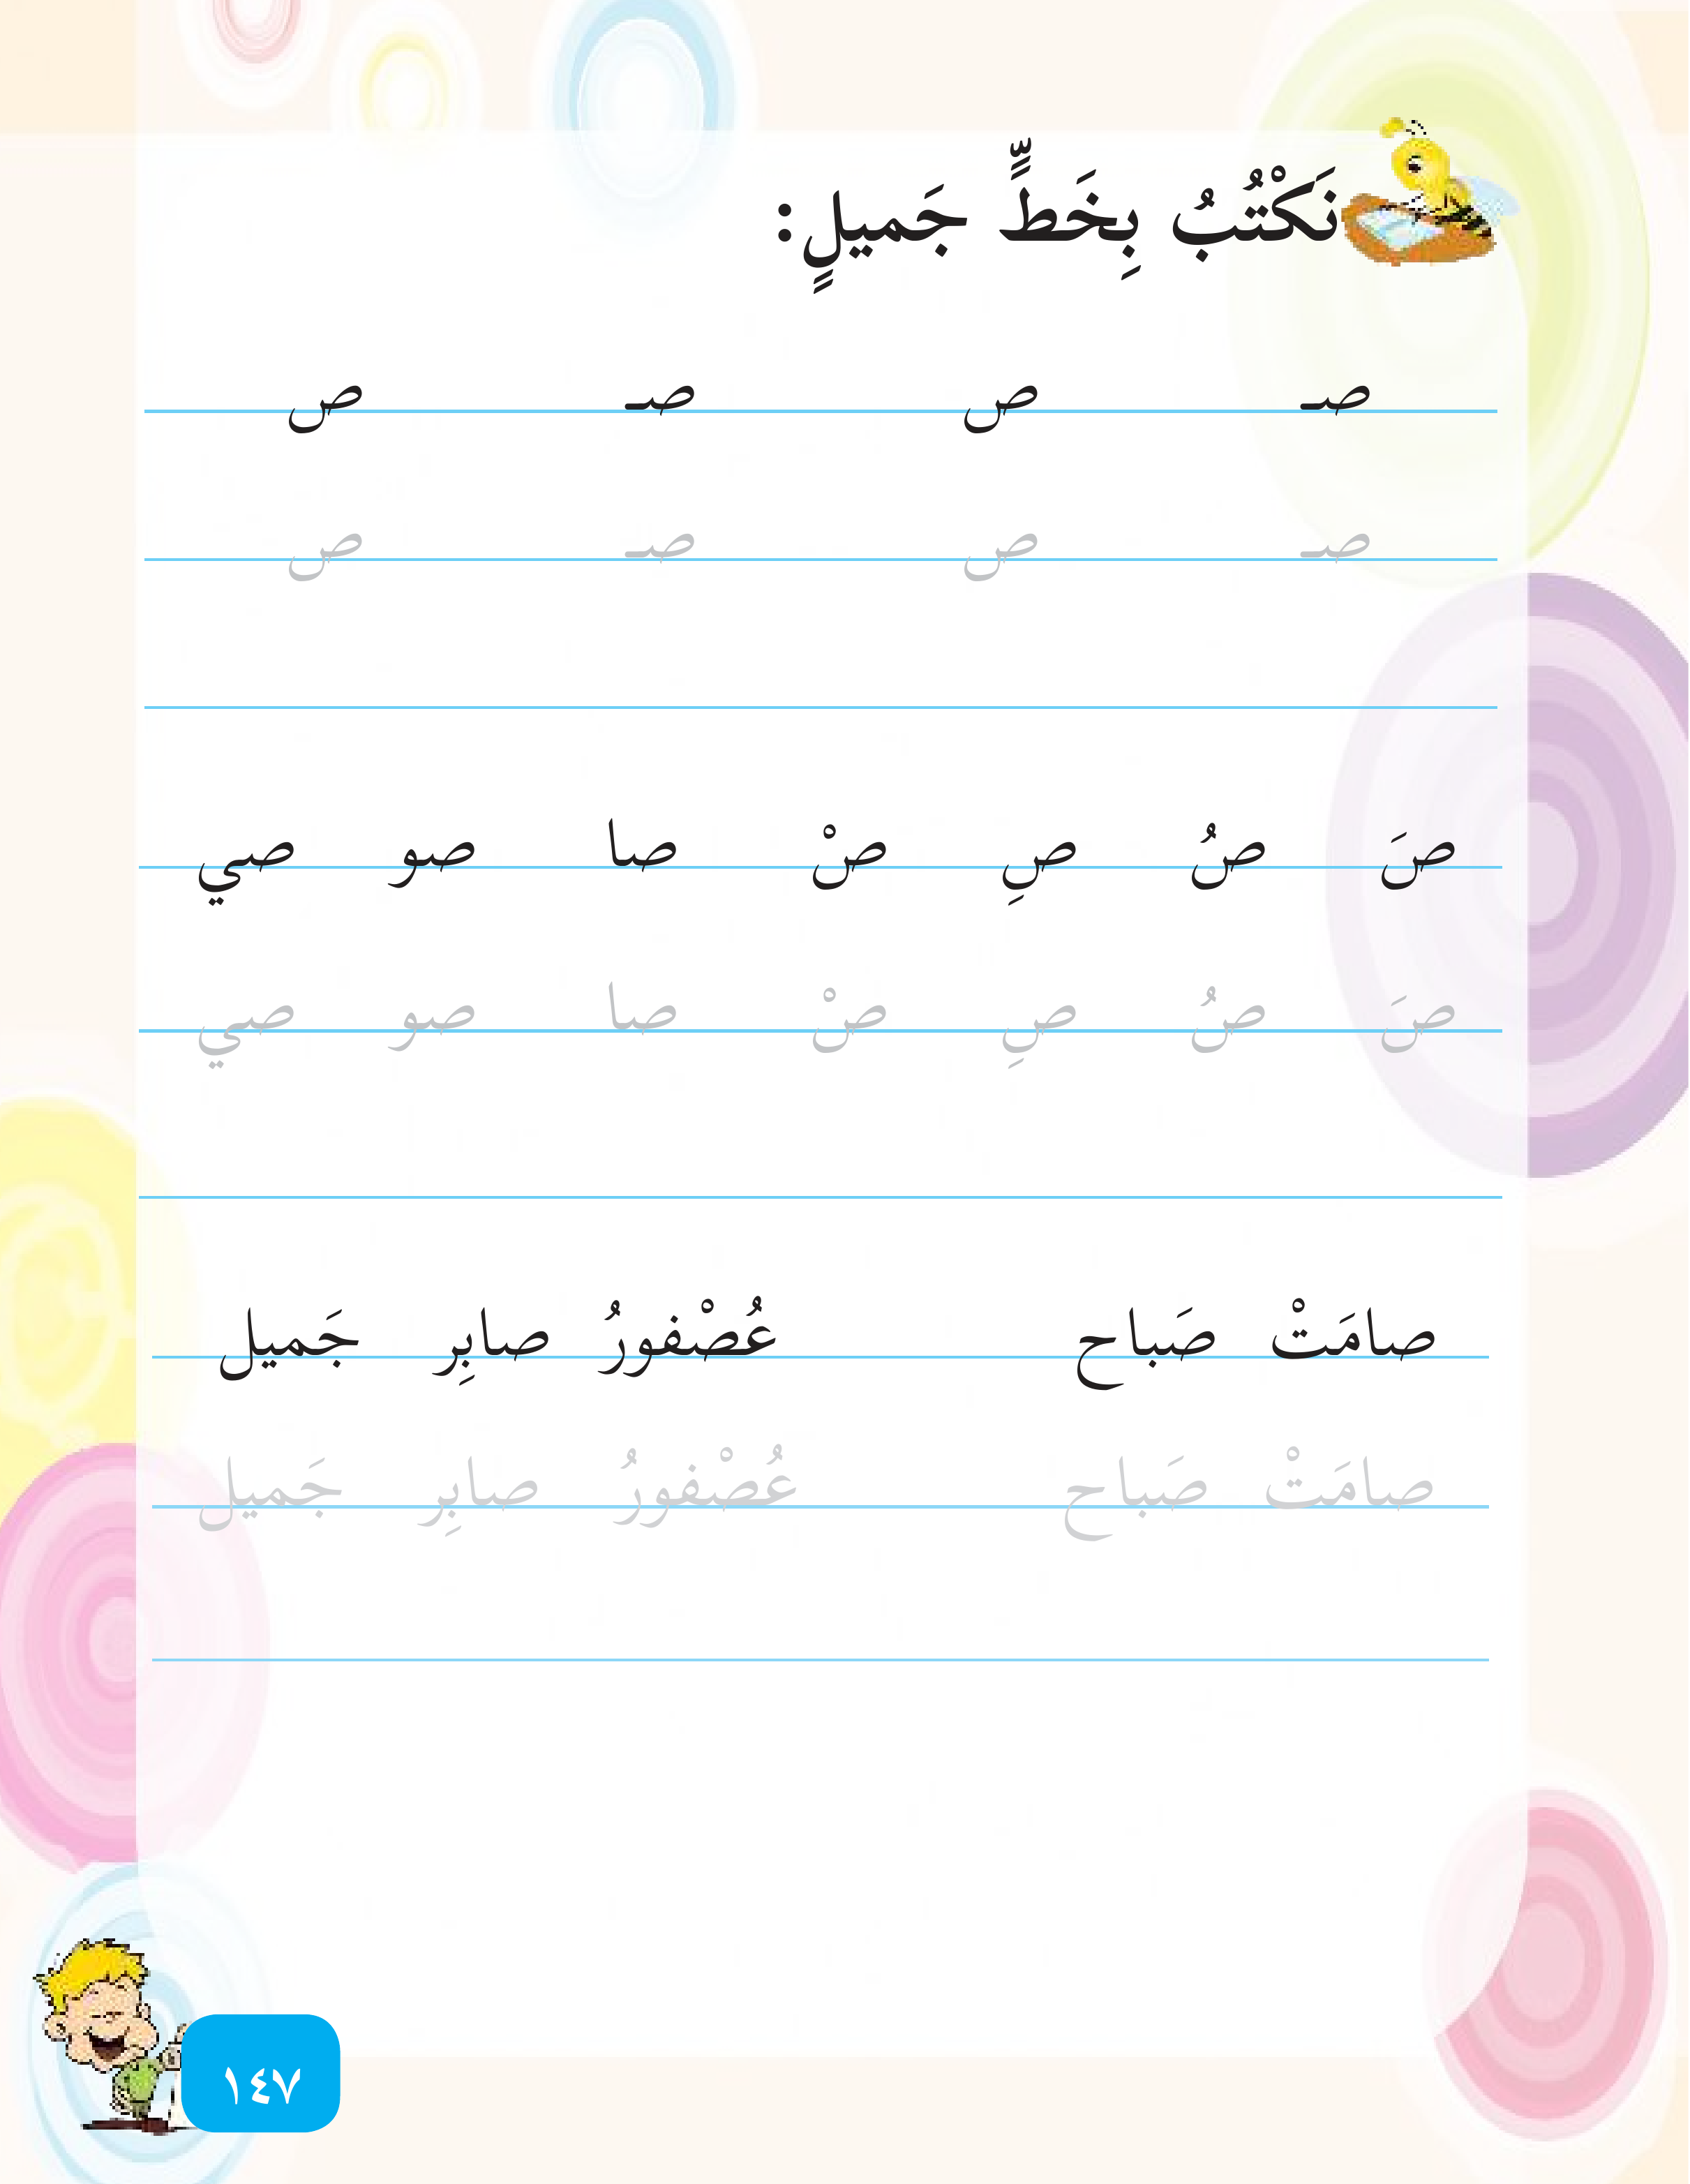 نَكْتُبُ بِخَطٍّ جَميلٍ:
صـ ص صـ ص
صـ ص صـ ص
صَ صُ صِ صْ صا صو صي
صَ صُ صِ صْ صا صو صي
صامَتْ صَباح عُصْفورُ صابِر جَميل
صامَتْ صَباح عُصْفورُ صابِر جَميل
١٤٧